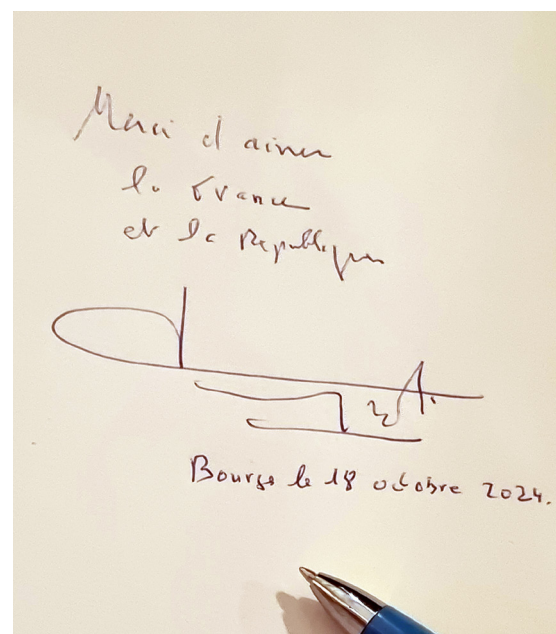 Merci d'aimer
la France
et la République
Bourges le 18 octobre 2024.